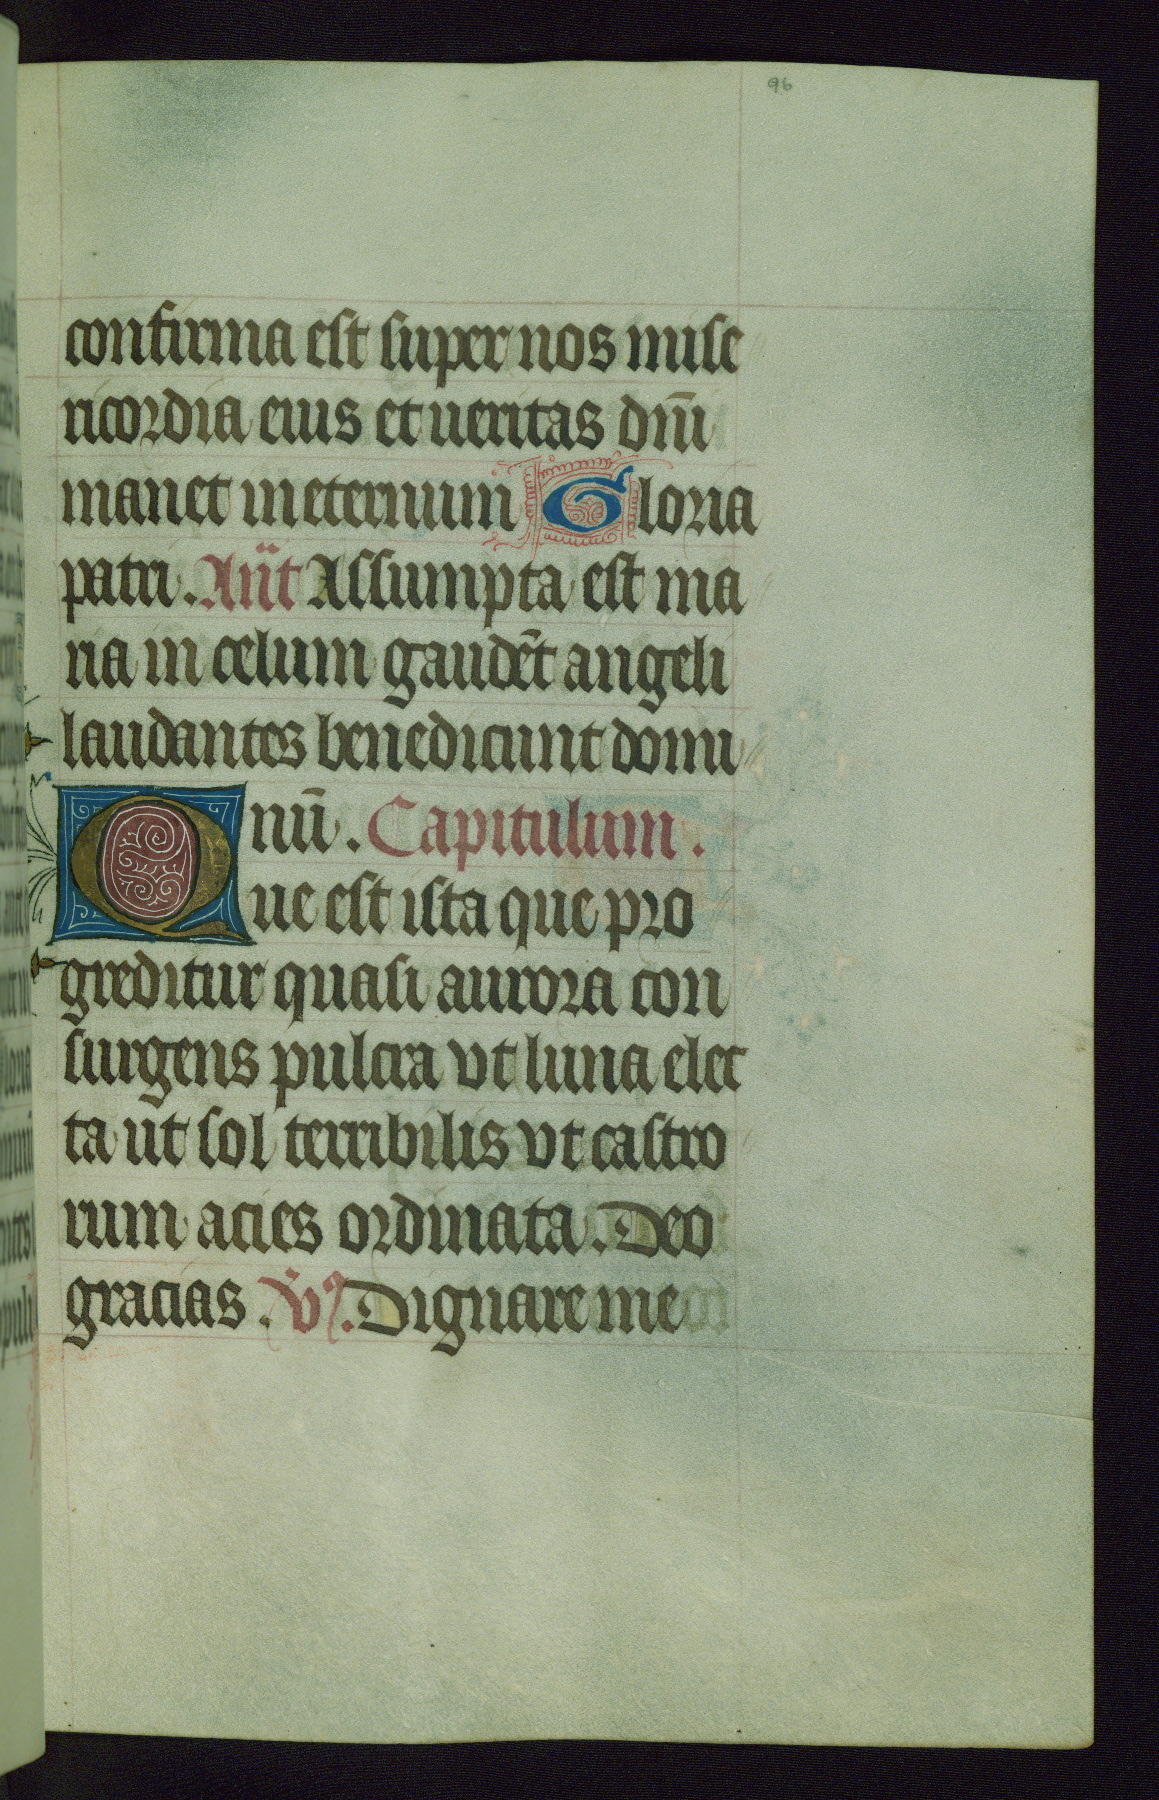 96
confirma est super nos mise
ricordia eius et ueritas dñi
manet in eternum Gloria
patri. Añt Assumpta est ma
ria in celum gaudẽt angeli
laudantes benedicunt domi
nũ. Capitulum.
Que est ista que pro
greditur quasi aurora con
surgens pulcra vt luna elec
ta ut sol terribilis vt castro
rum acies ordinata. Deo
gracias. V̇. Dignare me